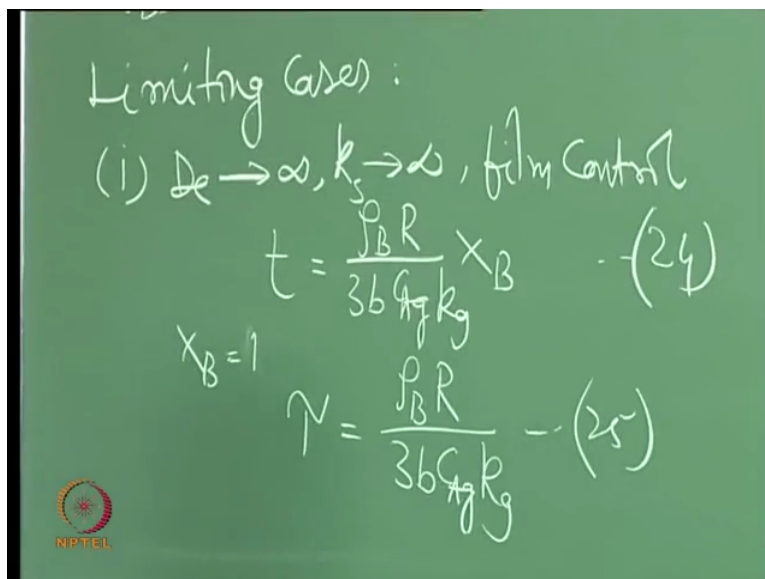 Limiting Cases :
(i) De → ∞, ks → ∞, film Control
t = ρB R / 3b CAg kg XB -- (24)
XB = 1
τ = ρB R / 3b CAg kg -- (25)
NPTEL